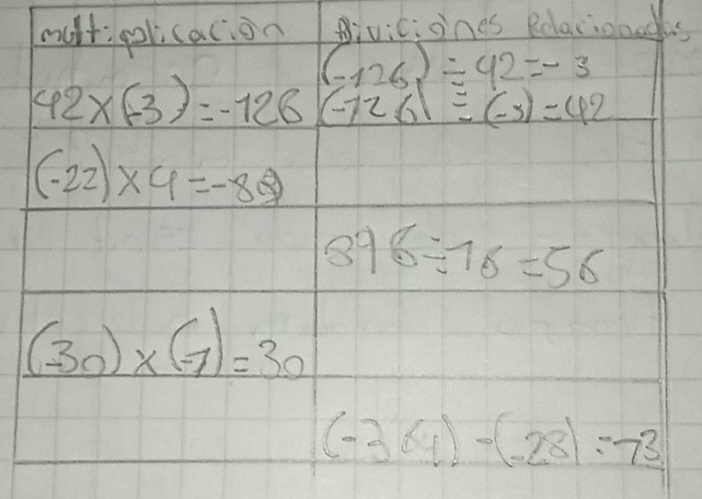 multiplicación
Diviciónes Relacionadas
(-126) ÷ 42 = -3
42 x (-3) = -126
(-126) ÷ (-3) = 42
(-22) x 4 = -88
896 ÷ 16 = 56
(-30) x (-1) = 30
(-364) - (-28) = -13